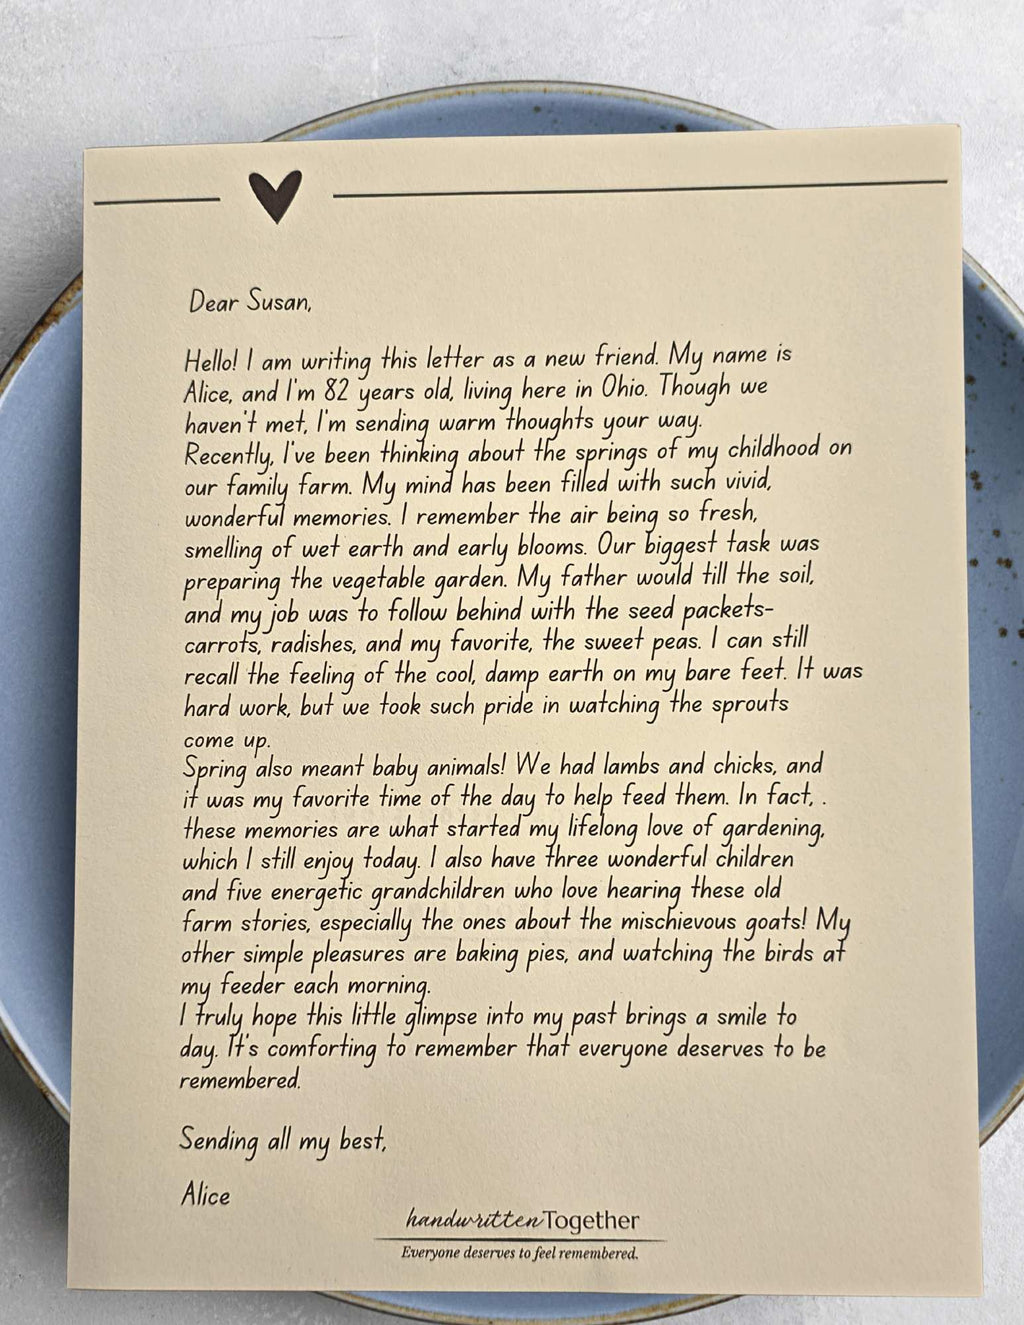 Dear Susan,
Hello! I am writing this letter as a new friend. My name is
Alice, and I'm 82 years old, living here in Ohio. Though we
haven't met, I'm sending warm thoughts your way.
Recently, I've been thinking about the springs of my childhood on
our family farm. My mind has been filled with such vivid,
wonderful memories. I remember the air being so fresh,
smelling of wet earth and early blooms. Our biggest task was
preparing the vegetable garden. My father would till the soil,
and my job was to follow behind with the seed packets-
carrots, radishes, and my favorite, the sweet peas. I can still
recall the feeling of the cool, damp earth on my bare feet. It was
hard work, but we took such pride in watching the sprouts
come up.
Spring also meant baby animals! We had lambs and chicks, and
it was my favorite time of the day to help feed them. In fact, .
these memories are what started my lifelong love of gardening,
which I still enjoy today. I also have three wonderful children
and five energetic grandchildren who love hearing these old
farm stories, especially the ones about the mischievous goats! My
other simple pleasures are baking pies, and watching the birds at
my feeder each morning.
I truly hope this little glimpse into my past brings a smile to
day. It's comforting to remember that everyone deserves to be
remembered.
Sending all my best,
Alice
handwrittenTogether
Everyone deserves to feel remembered.